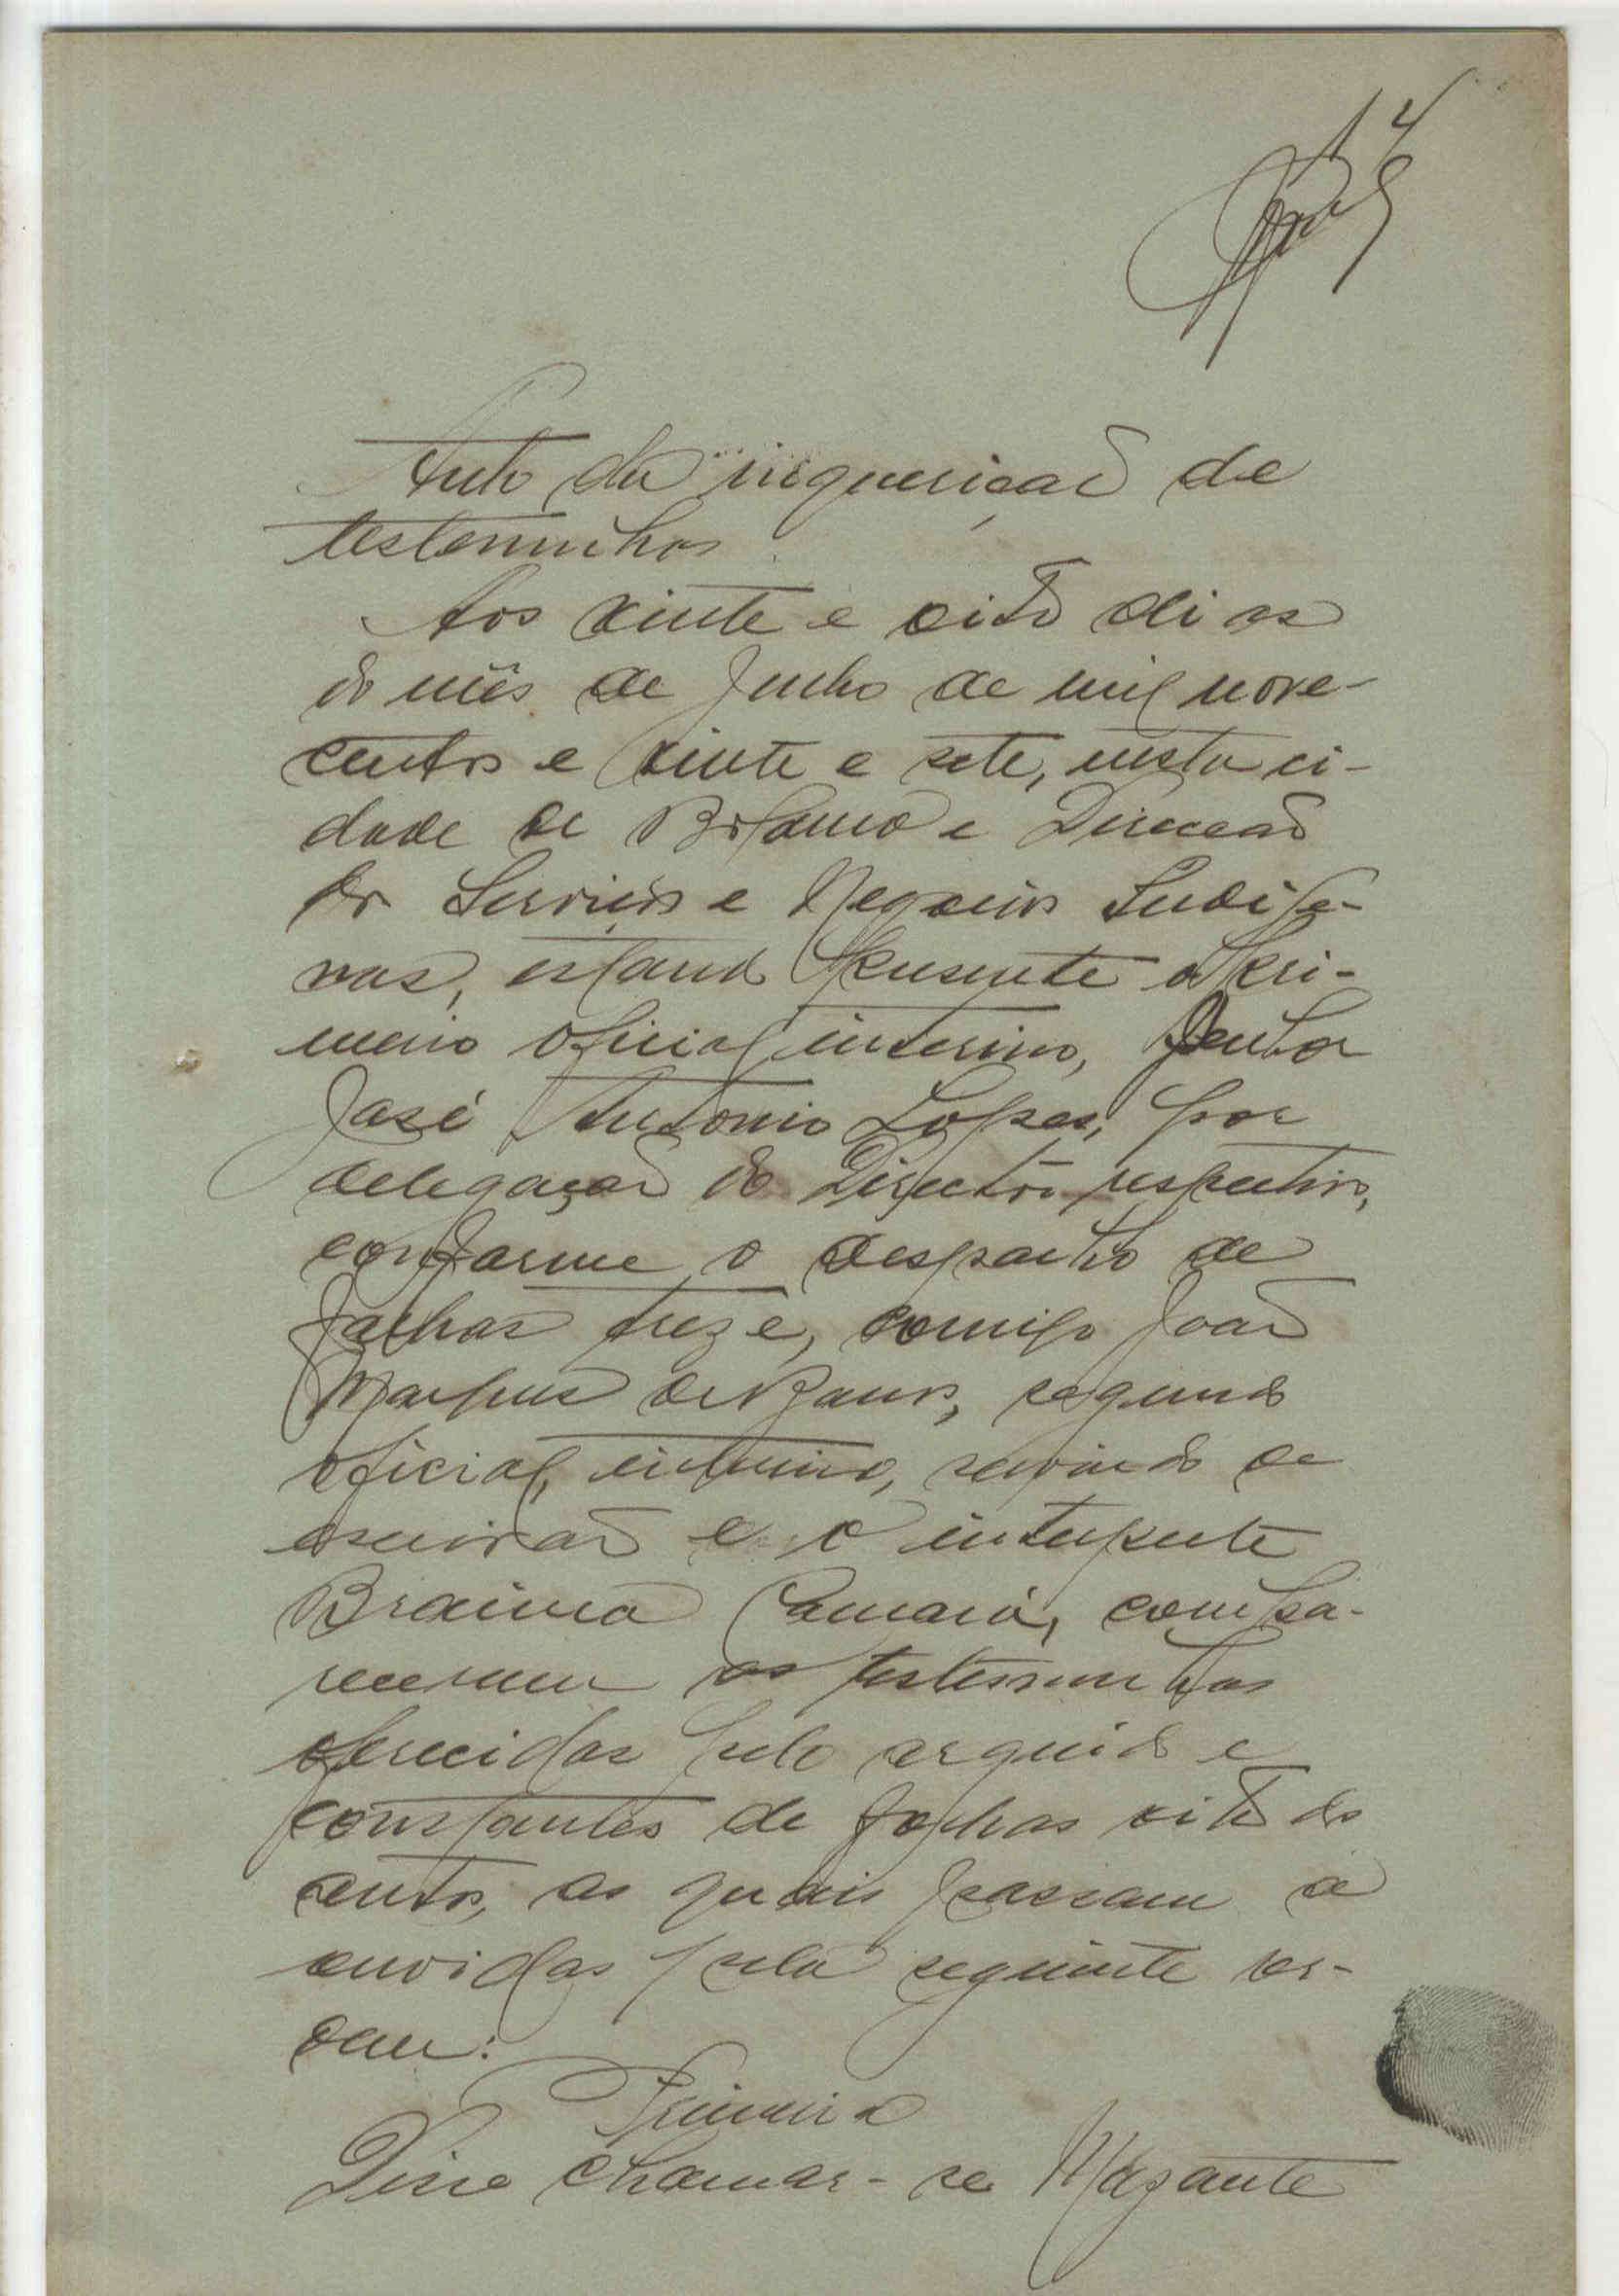 14
Auto de inquirição de
testemunhas
Aos vinte e oito dias
do mês de Junho de mil nove-
centos e vinte e sete, nesta ci-
dade de Bolama e Direcção
dos Serviços e Negocios Indige-
nas, estando presente o pri-
meiro oficial interino, Senhor
José Antonio Lopes, por
delegação do Director respectivo,
conforme o despacho de
folhas treze, comigo João
de Barros, segundo
oficial, interino, servindo de
escrivão e o interprete
Braima Camará, compa-
receram as testemunhas
oferecidas pelo arguido e
constantes de folhas oito dos
autos, as quais passam a
ouvidas pela seguinte or-
dem:
Primeira
Disse chamar-se